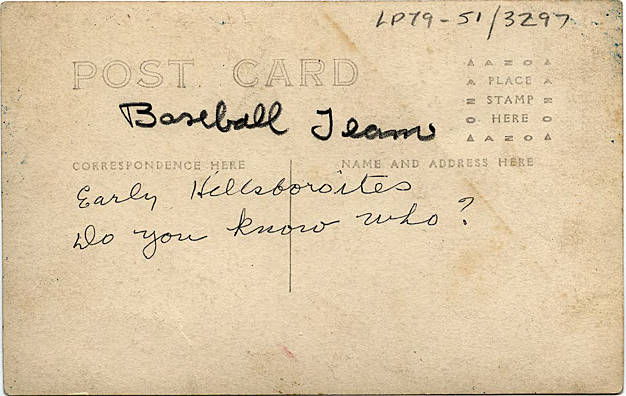 LP79-51/3297
POST CARD
AZO
PLACE
STAMP
HERE
AZO
Baseball Team
CORRESPONDENCE HERE
NAME AND ADDRESS HERE
Early Hillsboroites
Do you know who?